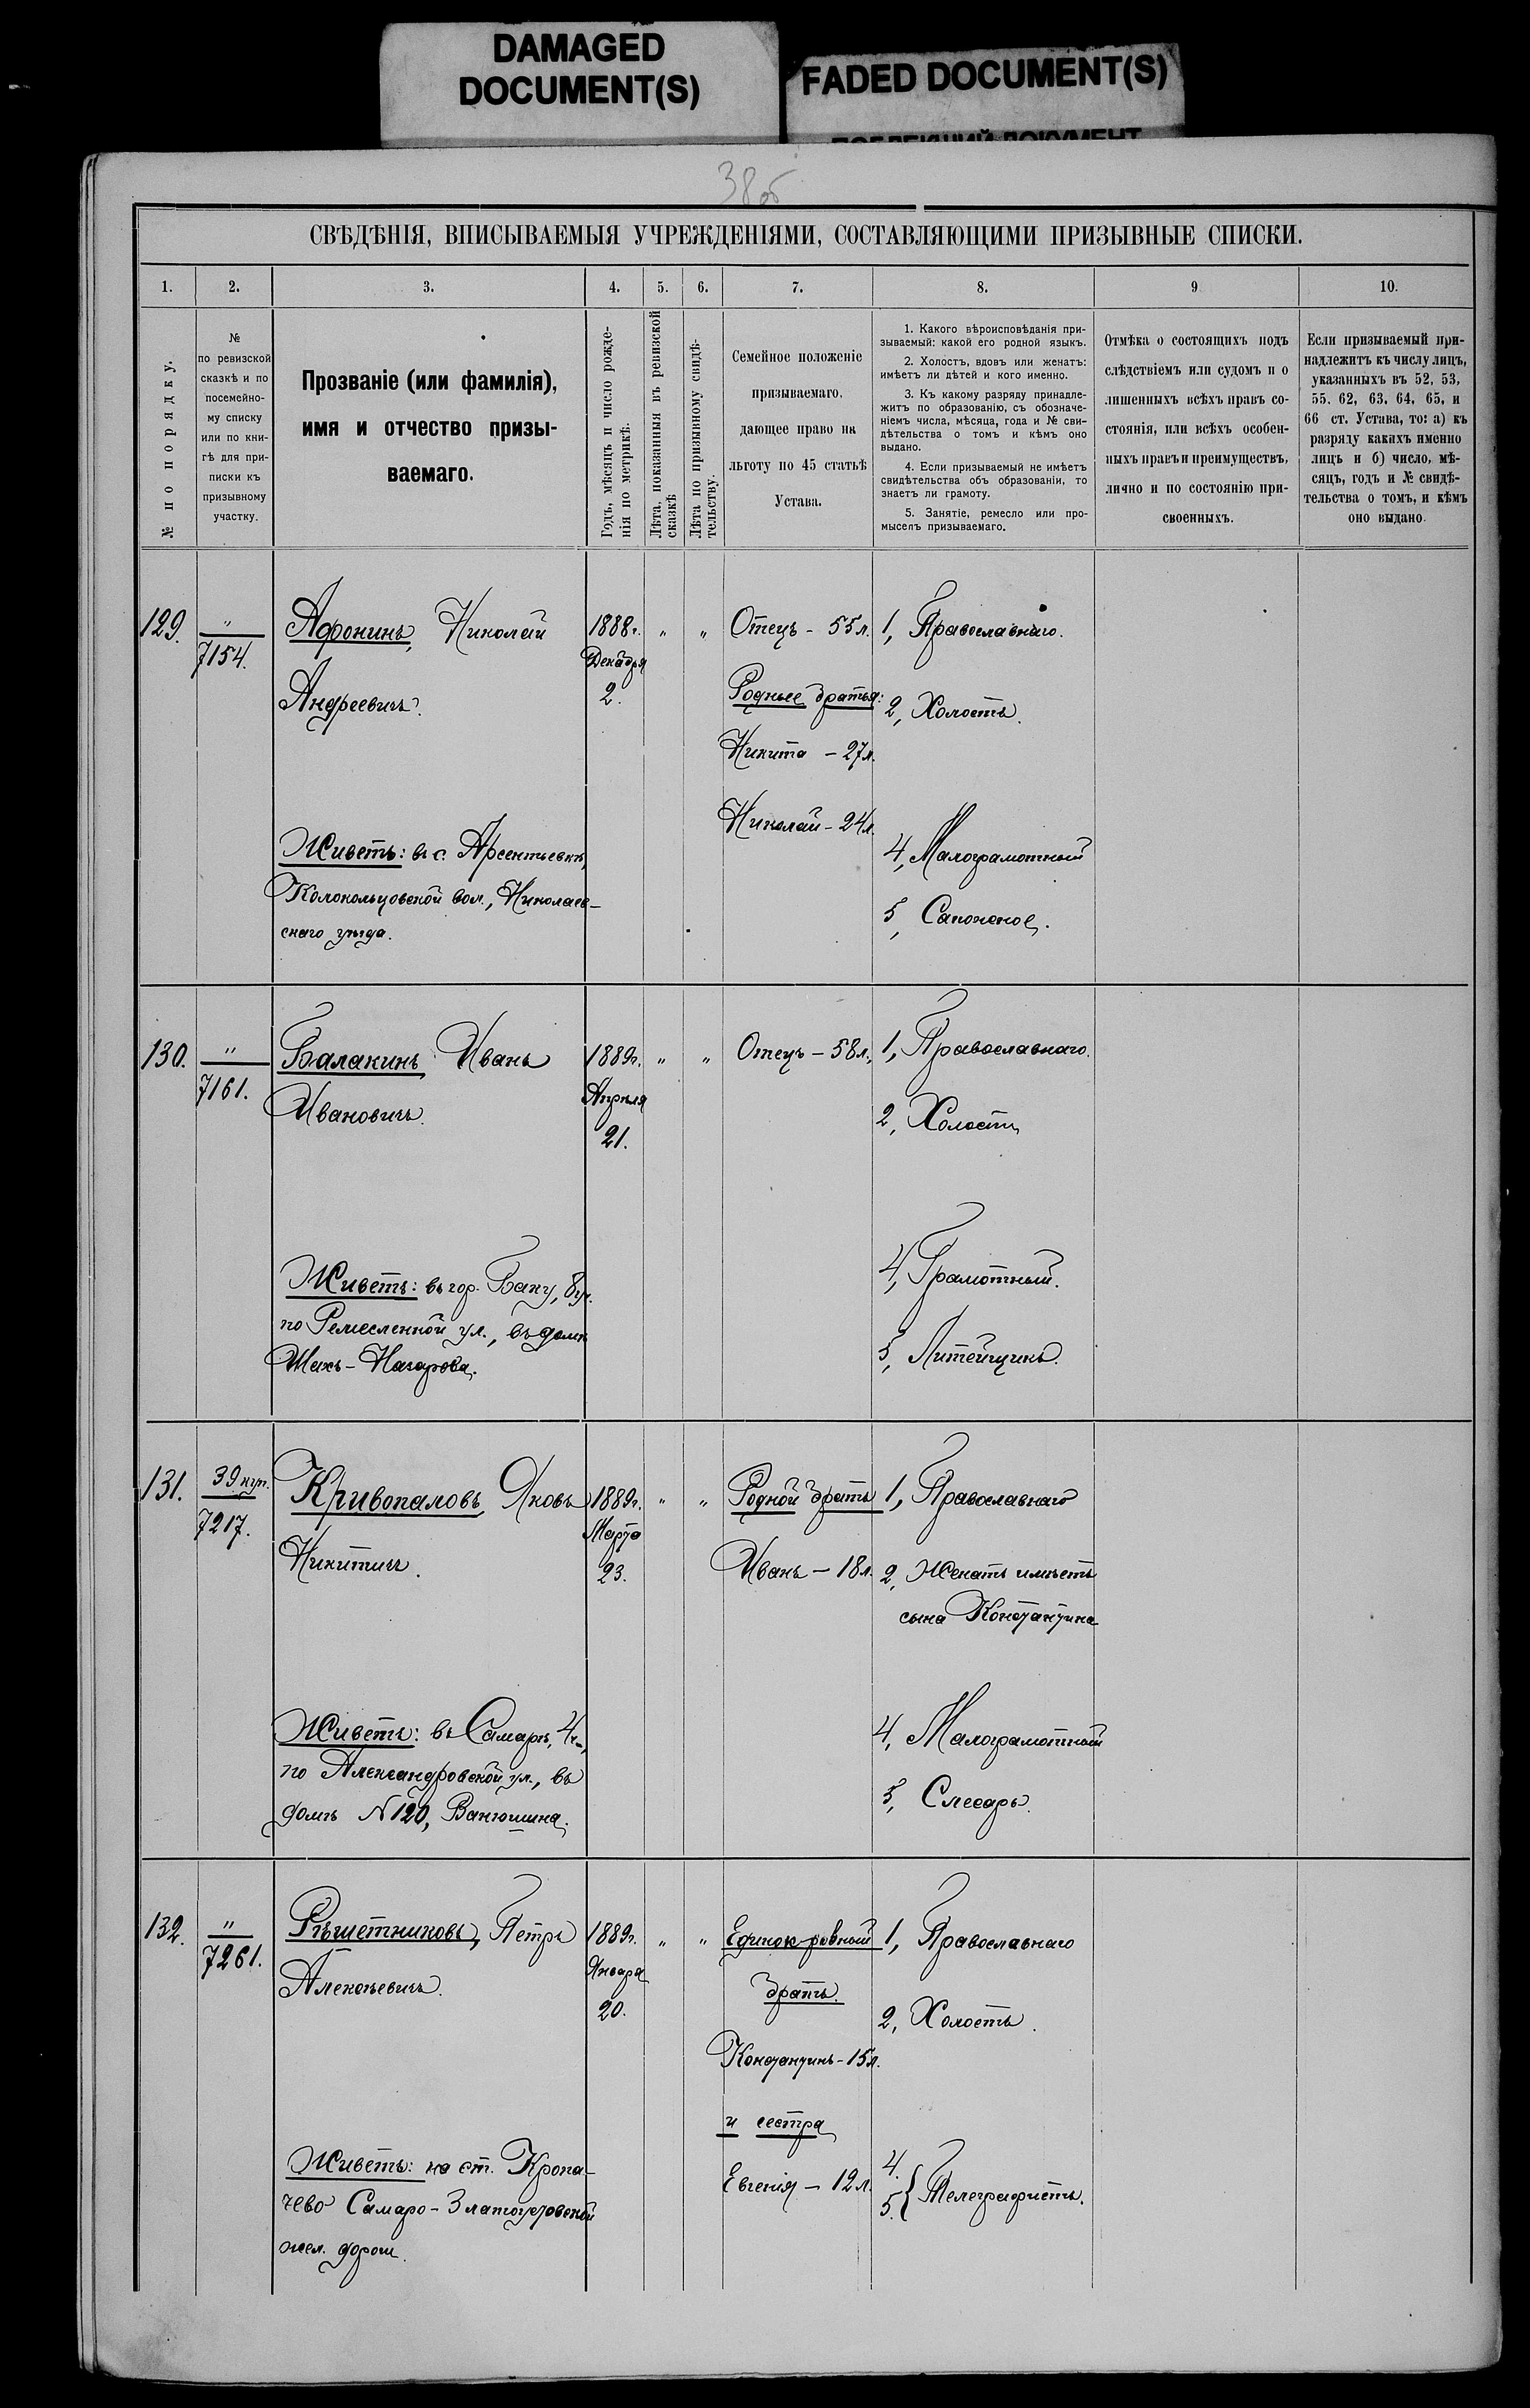 DAMAGED
DOCUMENT(S)
FADED DOCUMENT(S)
38об
СВѢДѢНІЯ, ВПИСЫВАЕМЫЯ УЧРЕЖДЕНІЯМИ, СОСТАВЛЯЮЩИМИ ПРИЗЫВНЫЕ СПИСКИ.
1. 2. 3. 4. 5. 6. 7. 8. 9 10.
№ по порядку.
№
по ревизской
сказкѣ и по
посемейно-
му списку
или по кни-
гѣ для при-
писки къ
призывному
участку.
Прозваніе (или фамилія),
имя и отчество призы-
ваемаго.
Годъ, мѣсяцъ и число рожде-
нія по метрикѣ.
Лѣта, показанныя въ ревизской
сказкѣ
Лѣта по призывному свидѣ-
тельству.
Семейное положеніе
призываемаго,
дающее право на
льготу по 45 статьѣ
Устава.
1. Какого вѣроисповѣданія при-
зываемый: какой его родной языкъ.
2. Холостъ, вдовъ или женатъ:
имѣетъ ли дѣтей и кого именно.
3. Къ какому разряду принадле-
житъ по образованію, съ обозначе-
ніемъ числа, мѣсяца, года и № сви-
дѣтельства о томъ и кѣмъ оно
выдано.
4. Если призываемый не имѣетъ
свидѣтельства объ образованіи, то
знаетъ ли грамоту.
5. Занятіе, ремесло или про-
мыселъ призываемаго.
Отмѣка о состоящихъ подъ
слѣдствіемъ или судомъ и о
лишенныхъ всѣхъ правъ со-
стоянія, или всѣхъ особен-
ныхъ правъ и преимуществъ,
лично и по состоянію при-
своенныхъ.
Если призываемый при-
надлежитъ къ числу лицъ,
указанныхъ въ 52, 53,
55. 62, 63, 64, 65, и
66 ст. Устава, то: а) къ
разряду какихъ именно
лицъ и б) число, мѣ-
сяцъ, годъ и № свидѣ-
тельства о томъ, и кѣмъ
оно выдано.
129.
"
7154.
Афонинъ, Николай
Андреевичъ.
Живетъ: въ с. Арсентьевкѣ,
Колокольцовской вол., Николаев-
скаго уѣзда.
1888г.
Декабря
2.
" "
Отецъ - 55л.
Родные братья:
Никита - 27л.
Николай - 24л.
1, Православнаго.
2, Холостъ.
4, Малограмотный
5, Сапожное.
130.
"
7161.
Балакинъ, Иванъ
Ивановичъ.
Живетъ: въ гор. Баку, 8уч.
по Ремесленной ул., въ домѣ
Шахъ-Назарова.
1889г.
Апрѣля
21.
" "
Отецъ - 58л.
1, Православнаго.
2, Холостъ
4, Грамотный.
5, Литейщикъ.
131.
39 куп.
7217.
Кривопаловъ, Яковъ
Никитичъ.
Живетъ: въ Самарѣ, 4ч.,
по Александровской ул., въ
домѣ №120, Ванюшина.
1889г.
Марта
23.
" "
Родной братъ
Иванъ - 18л.
1, Православнаго
2, Женатъ имѣетъ
сына Константина
4, Малограмотный
5, Слесарь.
132.
"
7261.
Рѣшетниковъ, Петръ
Алексѣевичъ.
Живетъ: на ст. Кропа-
чево Самаро-Златоустовской
жел. дороги.
1889г.
Января
20.
" "
Единокровный
братъ.
Константинъ - 15л.
и сестра
Евгенія - 12л.
1, Православнаго
2, Холостъ.
4.
5. { Телеграфистъ.